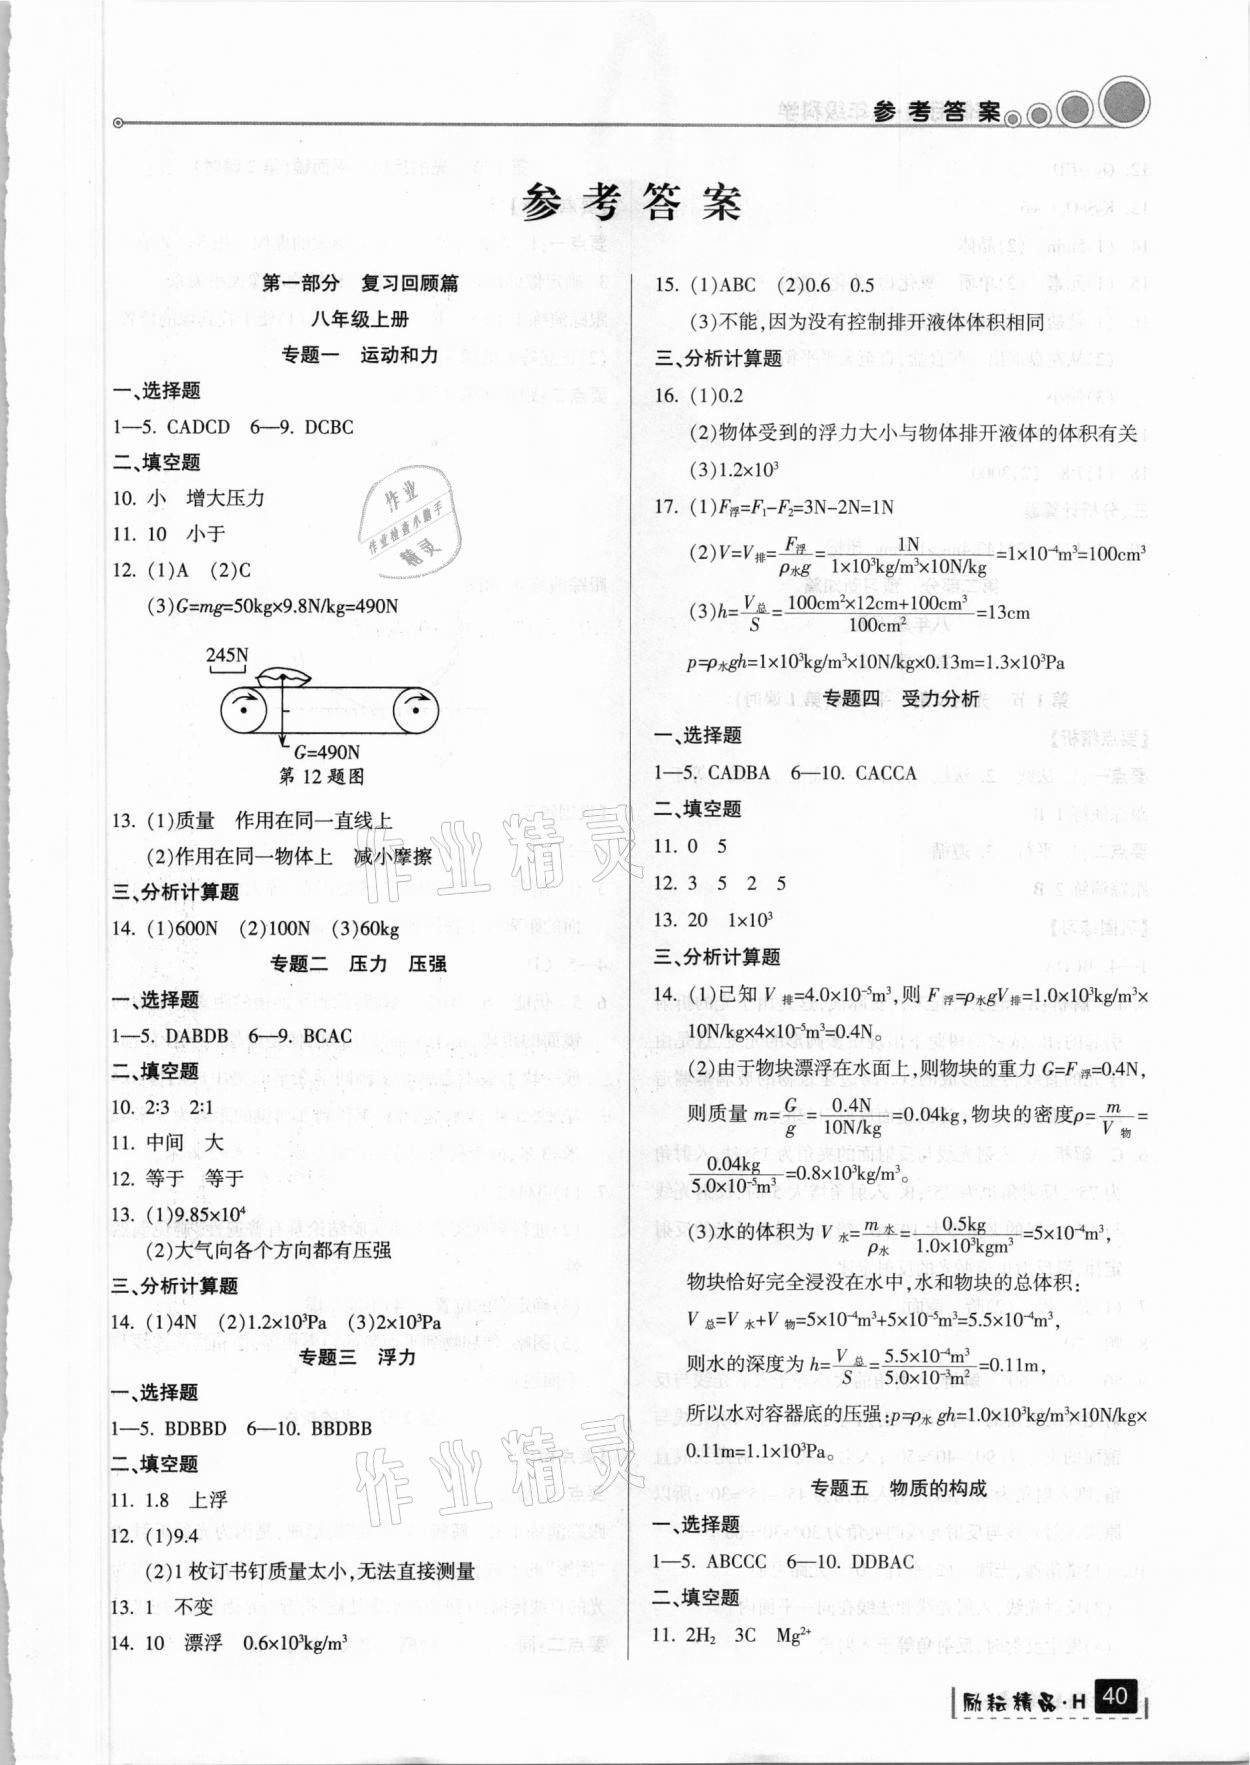 参考答案
参考答案
第一部分 复习回顾篇
八年级上册
专题一 运动和力
一、选择题
1—5. CADCD 6—9. DCBC
二、填空题
10. 小 增大压力
11. 10 小于
12. (1)A (2)C
(3)G=mg=50kg×9.8N/kg=490N
245N
G=490N
第12题图
13. (1)质量 作用在同一直线上
(2)作用在同一物体上 减小摩擦
三、分析计算题
14. (1)600N (2)100N (3)60kg
专题二 压力 压强
一、选择题
1—5. DABDB 6—9. BCAC
二、填空题
10. 2∶3 2∶1
11. 中间 大
12. 等于 等于
13. (1)9.85×10⁴
(2)大气向各个方向都有压强
三、分析计算题
14. (1)4N (2)1.2×10³Pa (3)2×10³Pa
专题三 浮力
一、选择题
1—5. BDBBD 6—10. BBDBB
二、填空题
11. 1.8 上浮
12. (1)9.4
(2)1枚订书钉质量太小,无法直接测量
13. 1 不变
14. 10 漂浮 0.6×10³kg/m³
15. (1)ABC (2)0.6 0.5
(3)不能,因为没有控制排开液体体积相同
三、分析计算题
16. (1)0.2
(2)物体受到的浮力大小与物体排开液体的体积有关
(3)1.2×10³
17. (1)F浮=F₁-F₂=3N-2N=1N
(2)V=V排=F浮/ρ水g=1N/1×10³kg/m³×10N/kg=1×10⁻⁴m³=100cm³
(3)h=V总/S=100cm²×12cm+100cm³/100cm²=13cm
p=ρ水gh=1×10³kg/m³×10N/kg×0.13m=1.3×10³Pa
专题四 受力分析
一、选择题
1—5. CADBA 6—10. CACCA
二、填空题
11. 0 5
12. 3 5 2 5
13. 20 1×10³
三、分析计算题
14. (1)已知V排=4.0×10⁻⁵m³,则F浮=ρ水gV排=1.0×10³kg/m³×
10N/kg×4×10⁻⁵m³=0.4N。
(2)由于物块漂浮在水面上,则物块的重力G=F浮=0.4N,
则质量m=G/g=0.4N/10N/kg=0.04kg,物块的密度ρ=m/V物=
0.04kg/5.0×10⁻⁵m³=0.8×10³kg/m³。
(3)水的体积为V水=m水/ρ水=0.5kg/1.0×10³kgm³=5×10⁻⁴m³,
物块恰好完全浸没在水中,水和物块的总体积:
V总=V水+V物=5×10⁻⁴m³+5×10⁻⁵m³=5.5×10⁻⁴m³,
则水的深度为h=V总/S=5.5×10⁻⁴m³/5.0×10⁻³m²=0.11m,
所以水对容器底的压强:p=ρ水gh=1.0×10³kg/m³×10N/kg×
0.11m=1.1×10³Pa。
专题五 物质的构成
一、选择题
1—5. ABCCC 6—10. DDBAC
二、填空题
11. 2H₂ 3C Mg²⁺
励耘精品·H 40
作业
作业检查小助手
精灵
作业精灵
作业精灵